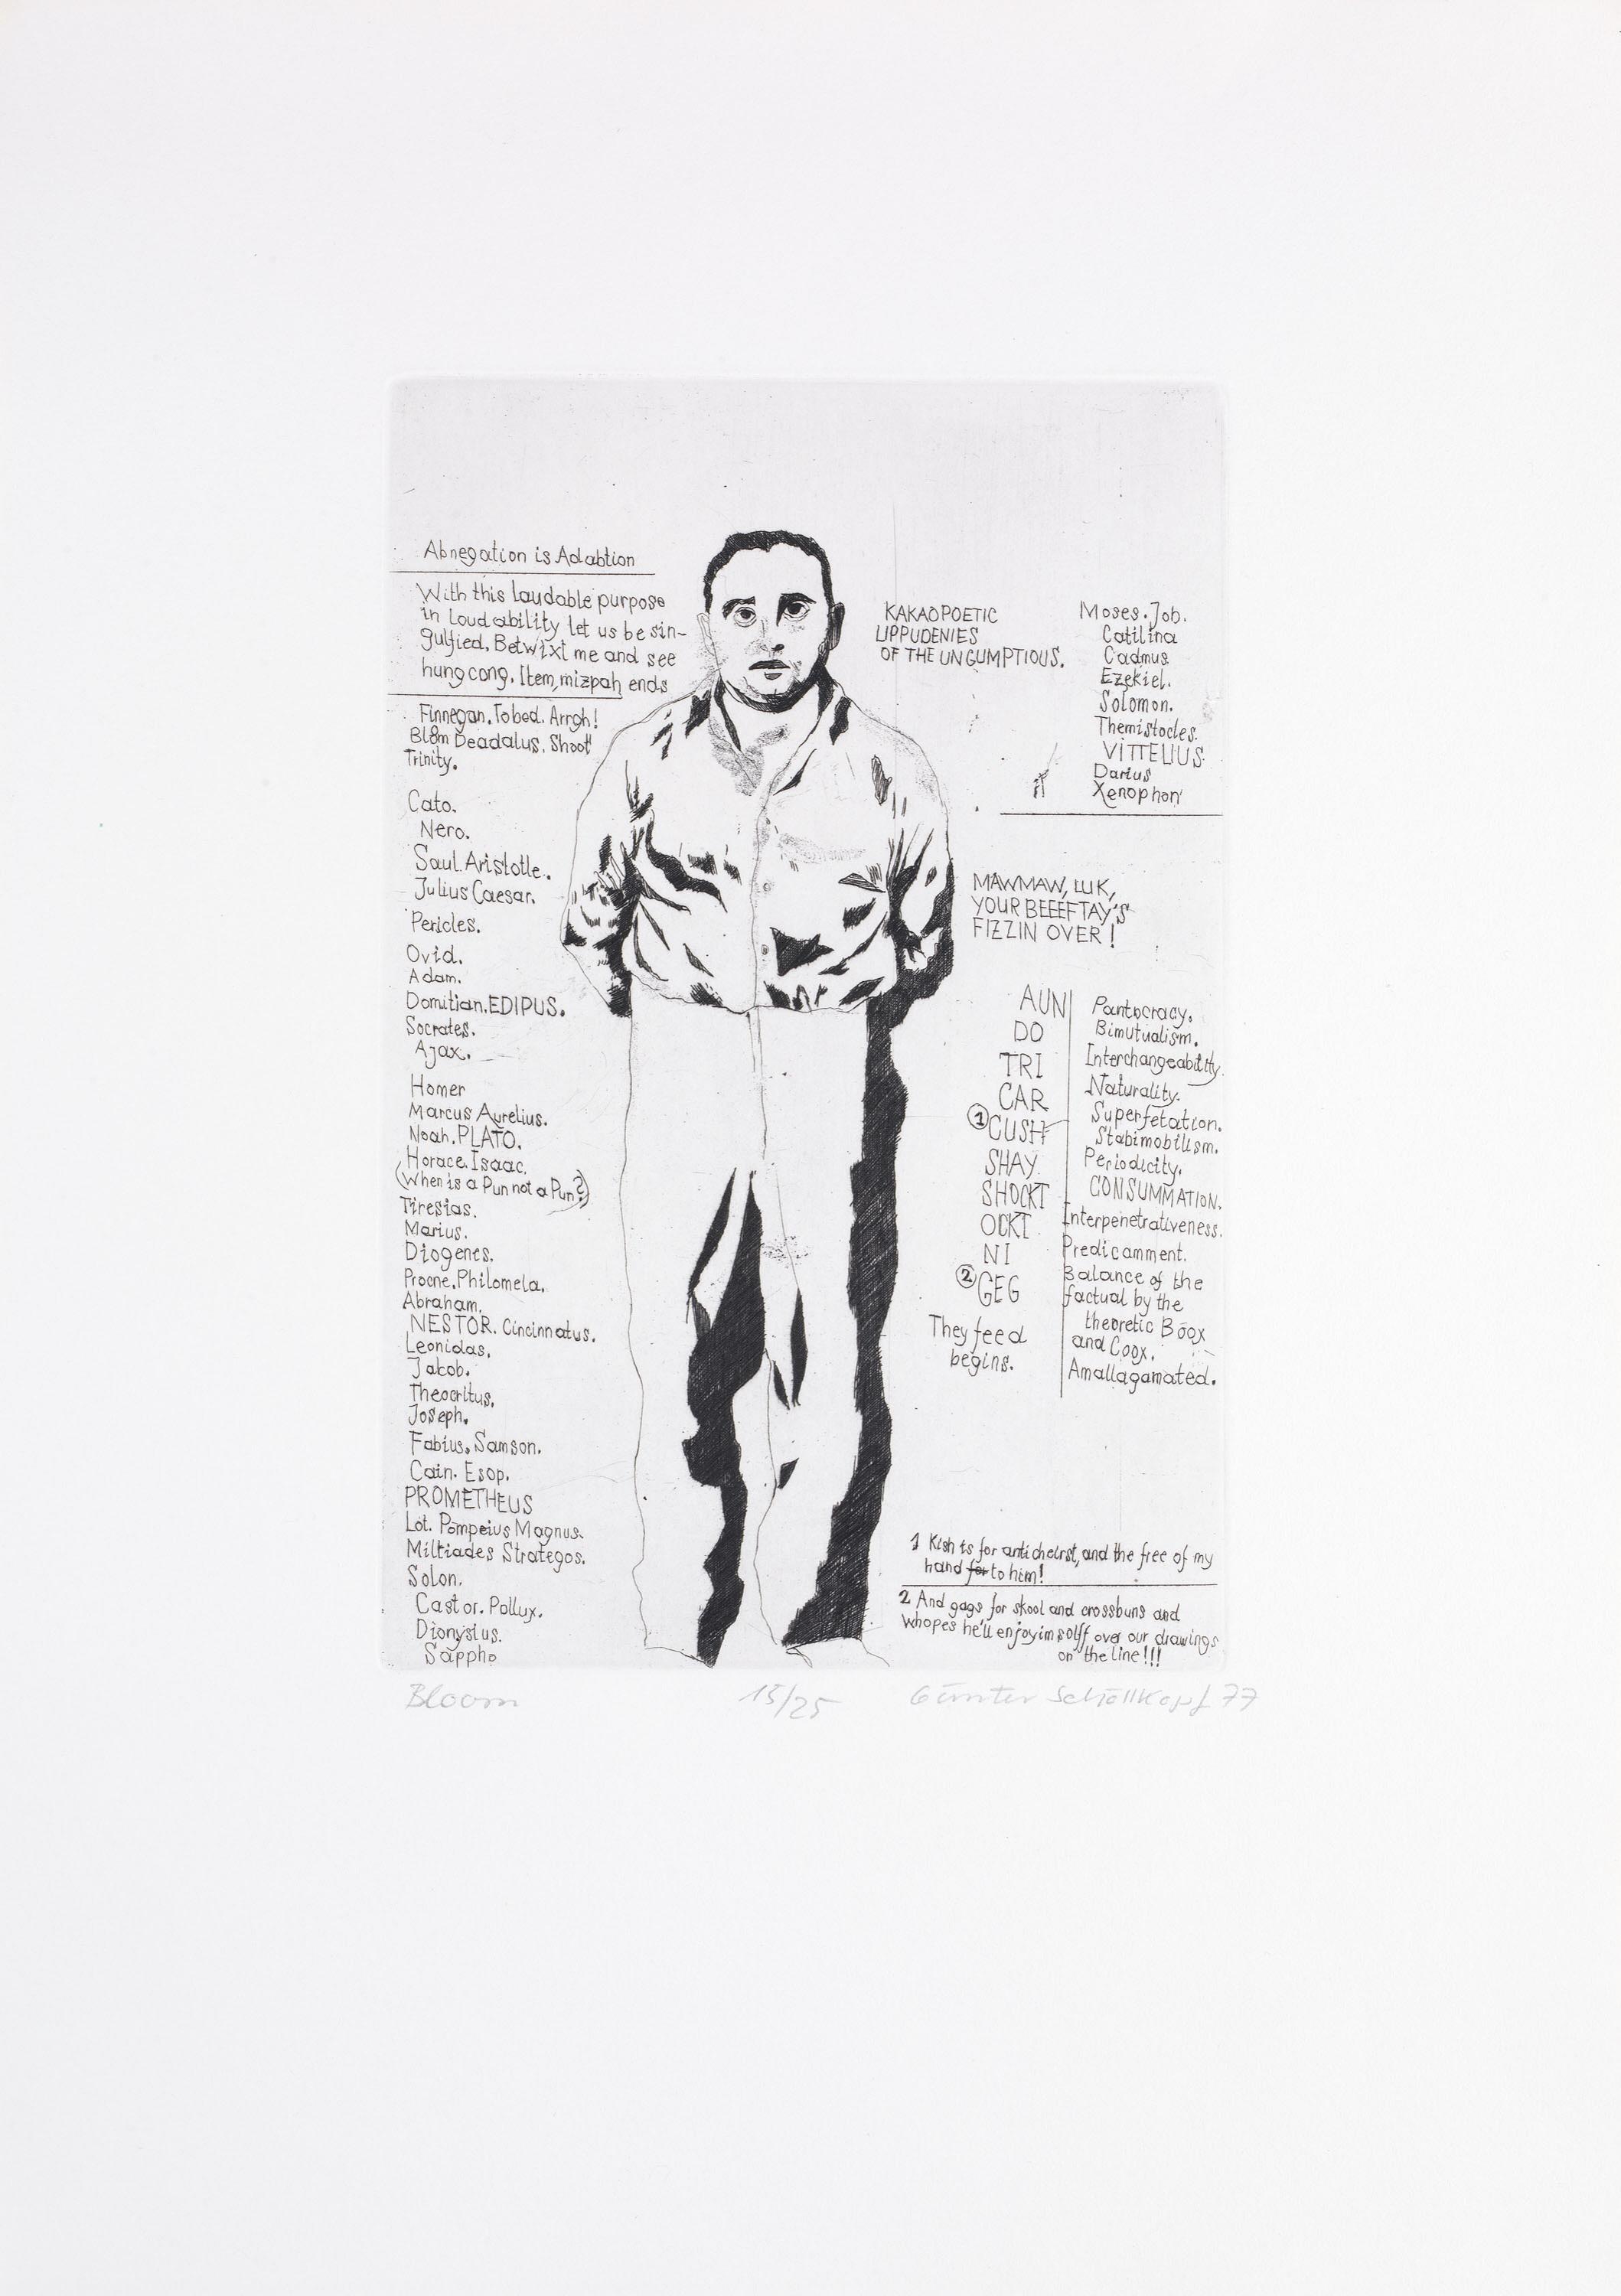 Abnegation is Adabtion
With this laudable purpose
in loudability let us be sin-
gulfied. Betwixt me and see
hung cong. Item, mizpah ends
Finnegan. Tobed. Arrgh!
Bloom Deadalus. Shoot
Trinity.
Cato.
Nero.
Saul. Aristotle.
Julius Caesar.
Pericles.
Ovid.
Adam.
Domitian. EDIPUS.
Socrates.
Ajax.
Homer
Marcus Aurelius.
Noah. PLATO.
Horace. Isaac.
(When is a Pun not a Pun?)
Tiresias.
Marius.
Diogenes.
Procne. Philomela.
Abraham.
NESTOR. Cincinnatus.
Leonidas.
Jakob.
Theocritus.
Joseph.
Fabius. Samson.
Cain. Esop.
PROMETHEUS
Lot. Pompeius Magnus.
Miltiades Strategos.
Solon.
Castor. Pollux.
Dionysius.
Sappho
KAKAOPOETIC
LIPPUDENIES
OF THE UNGUMPTIOUS.
Moses. Job.
Catilina
Cadmus
Ezekiel.
Solomon.
Themistocles.
VITTELIUS
Darius
Xenophon
MAWMAW, LUK,
YOUR BEEEFTAY'S
FIZZIN OVER!
AUN
DO
TRI
CAR
1 CUSH
SHAY
SHOCKT
OCKT
NI
2 GEG
They feed
begins.
Pantocracy.
Bimutualism.
Interchangeability.
Naturality.
Superfetation.
Stabimobilism.
Periodicity.
CONSUMMATION.
Interpenetrativeness.
Predicamment.
Balance of the
factual by the
theoretic Boox
and Coox.
Amallagamated.
1 Kish is for anticheirst, and the free of my
hand for to him!
2 And gags for skool and crossbuns and
whopes he'll enjoyimsolff over our drawings
on the line!!!
Bloom 15/25 Günter Schöllkopf 77